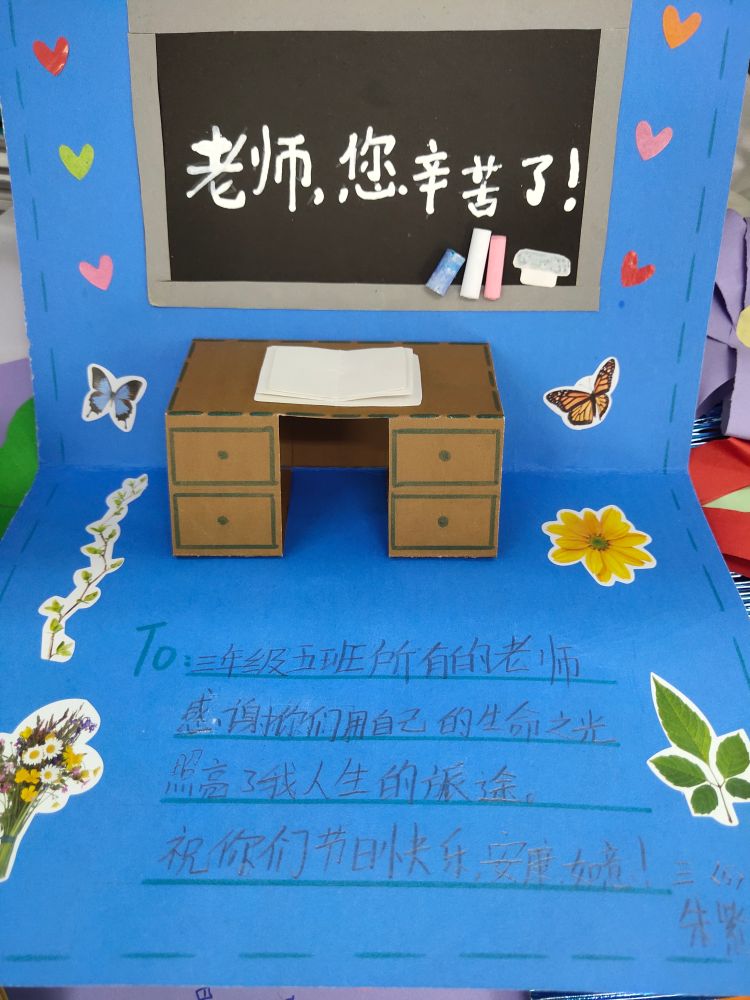 老师,您辛苦了!
To:三年级五班所有的老师
感谢你们用自己的生命之光
照亮了我人生的旅途。
祝你们节日快乐,安康如意!
三(5)
朱